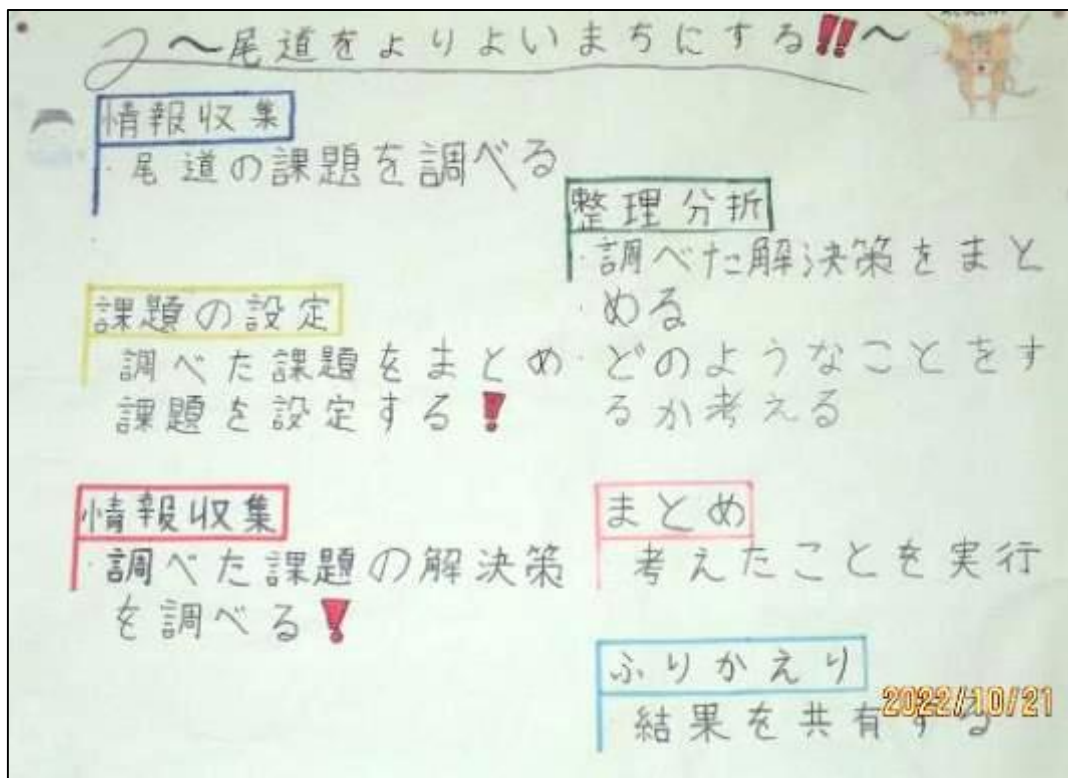 ～尾道をよりよいまちにする!!～
情報収集
・尾道の課題を調べる
課題の設定
調べた課題をまとめ
課題を設定する!
情報収集
・調べた課題の解決策
を調べる!
整理分析
・調べた解決策をまと
める
・どのようなことをす
るか考える
まとめ
考えたことを実行
ふりかえり
結果を共有する
2022/10/21